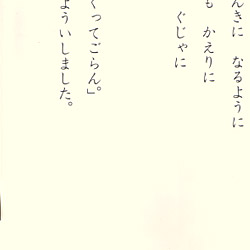 んきに なるように
も かえりに
ぐじゃに
くってごらん。」
よういしました。